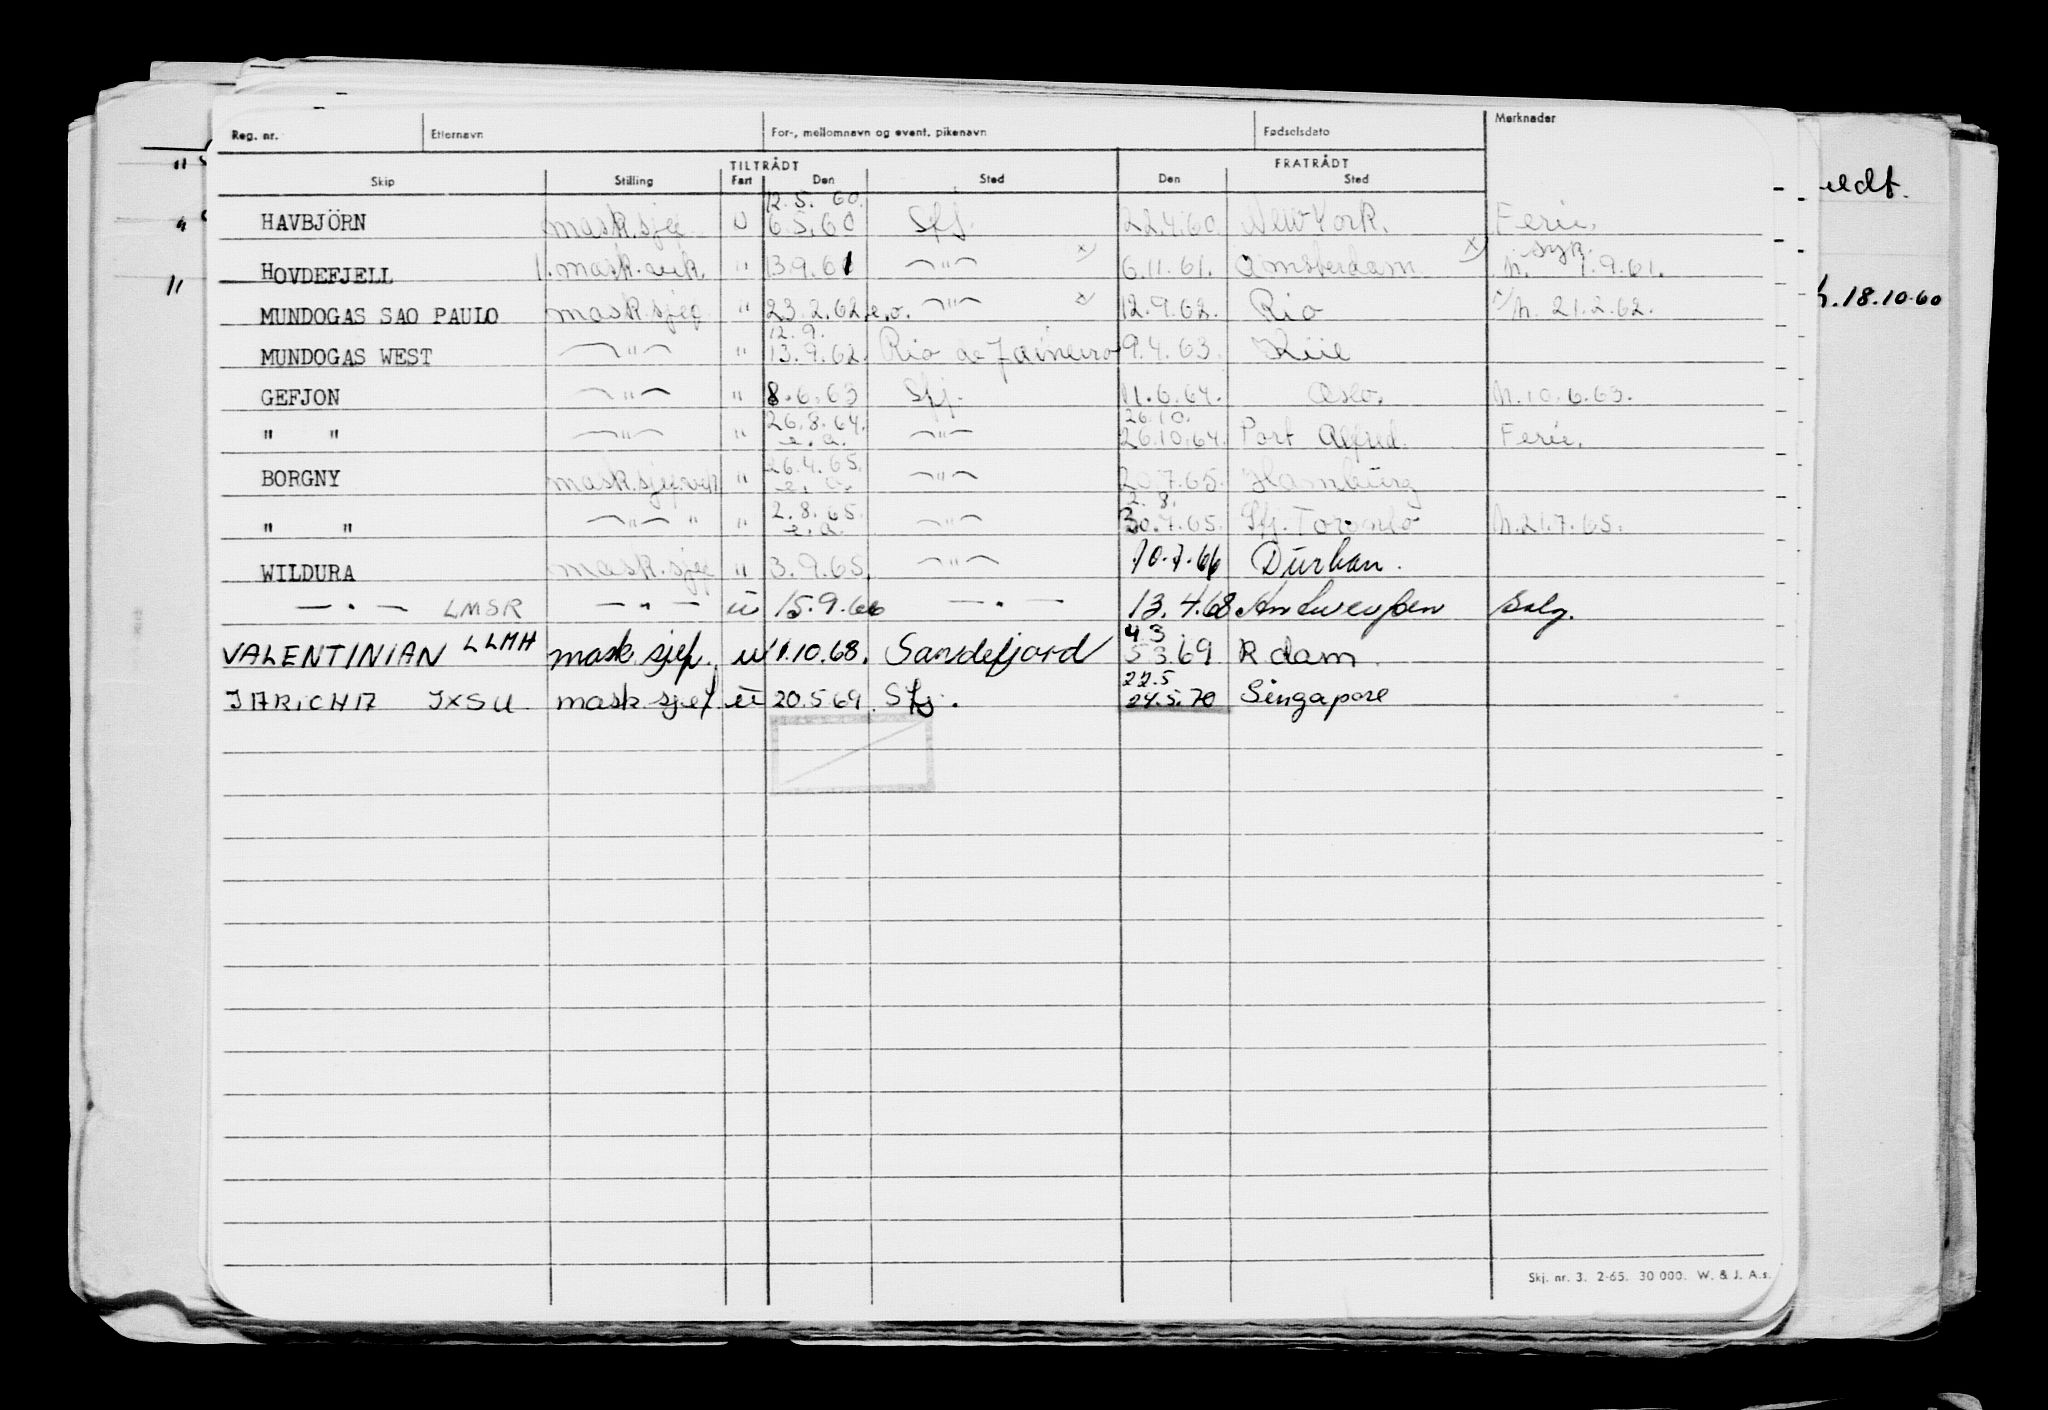 Reg. nr. Etternavn For-, mellomnavn og event. pikenavn Fødselsdato Merknader
TILTRÅDT FRATRÅDT
Skip Stilling Fart Den Sted Den Sted
12.5. 60.
HAVBJÖRN mask.sjef u 6.5.60 Sfj. 22.4.60 New York. Ferie.
syk.
HOVDEFJELL 1. mask. vik. " 13.9.61 —"— x) 6.11.61. Amsterdam x) h. 1.9.61.
MUNDOGAS SAO PAULO mask.sjef " 23.2.62 e.o. —"— x) 12.9.62. Rio x) h. 21.2.62.
12.9.
MUNDOGAS WEST —"— " 13.9.62. Rio de Janeiro 9.4.63. Kiel
GEFJON —"— " 8.6.63 Sfj. 11.6.64. Oslo. h.10.6.63.
26.8.64. 26.10.
" " —"— " e.a. —"— 26.10.64. Port Alfred. Ferie.
26.4.65.
BORGNY mask.sjef vik " e.a. —"— 20.7.65. Hamburg
2.8.65. 2.8.
" " —"— " " e.a. —"— 30.7.65. Sfj. Toronto h.21.7.65.
WILDURA mask.sjef " 3.9.65. —"— 10.7.66 Durban.
—"— LMSR —"— u 15.9.66 —"— 13.4.68 Antwerpen Salg.
4.3
VALENTINIAN LLMH mask sjef. u 11.10.68. Sandefjord 5 3.69 R dam
22.5
JARICHA JXSU mask sjef u 20.5 69 Sfj. 24.5.70 Singapore
Skj. nr. 3. 2-65. 30 000. W. & J. A.s.
eldt.
h. 18.10.60